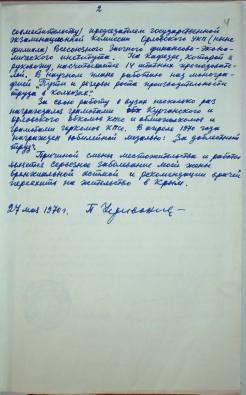 2
4
совместительству) председателем государственной
экзаменационной комиссии Орловского УКП (ныне
филиала) Всесоюзного Заочного финансово-эконо-
мического института. На кафедре, которой я
руковожу, насчитывается 14 штатных преподавате-
лей. В научном плане работаю над моногра-
фией "Пути и резервы роста производительности
труда в колхозах".
За свою работу в вузах несколько раз
награждался грамотами Курганского и
Орловского обкома КПСС и облисполкомов и
грамотами горкомов КПСС. В апреле 1970 года
награжден юбилейной медалью: За доблестный
труд".
Причиной смены местожительства и работы
является серьезное заболевание моей жены
бронхиальной астмой и рекомендации врачей
переехать на жительство в Крым.
27 мая 1970 г.